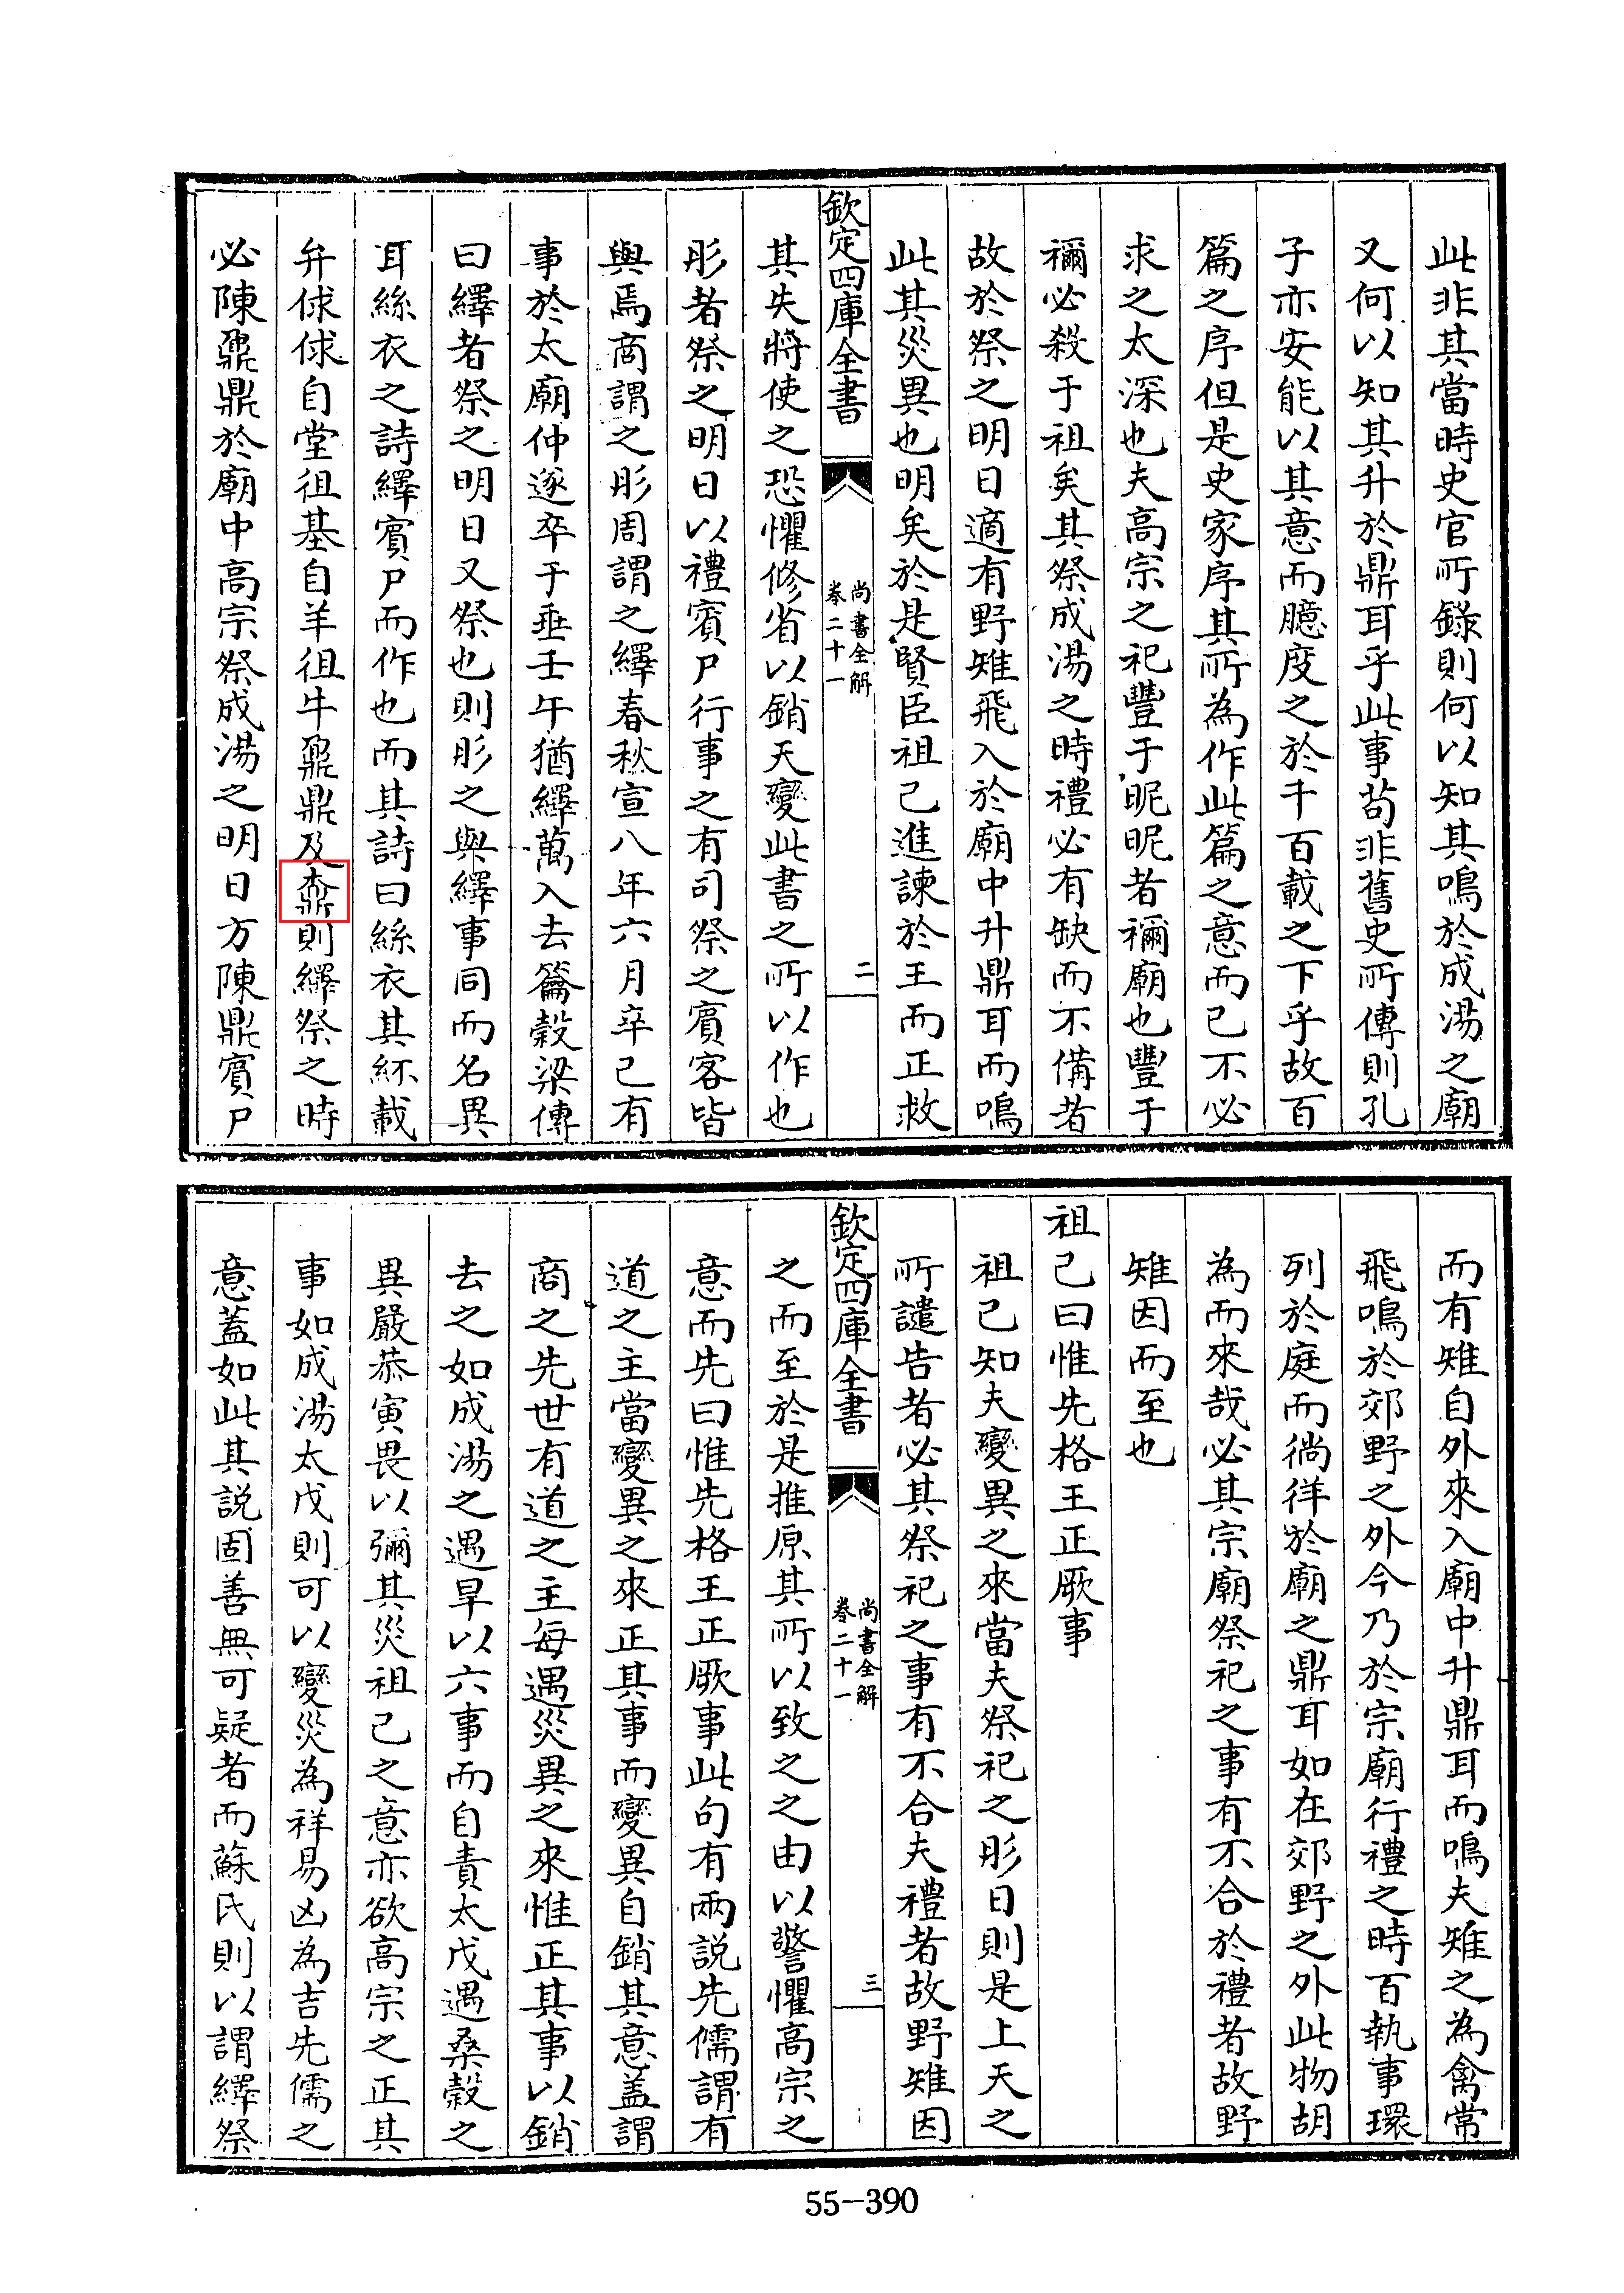 此非其當時史官所錄則何以知其鳴於成湯之廟
又何以知其升於鼎耳乎此事苟非舊史所傳則孔
子亦安能以其意而臆度之於千百載之下乎故百
篇之序但是史家序其所為作此篇之意而已不必
求之太深也夫高宗之祀豐于昵昵者禰廟也豐于
禰必殺于祖矣其祭成湯之時禮必有缺而不備者
故於祭之明日適有野雉飛入於廟中升鼎耳而鳴
此其災異也明矣於是賢臣祖己進諫於王而正救
欽定四庫全書
尚書全解
卷二十一
二
其失將使之恐懼修省以銷天變此書之所以作也
肜者祭之明日以禮賓尸行事之有司祭之賓客皆
與焉商謂之肜周謂之繹春秋宣八年六月辛已有
事於太廟仲遂卒于垂壬午猶繹萬入去籥穀梁傳
曰繹者祭之明日又祭也則肜之與繹事同而名異
耳絲衣之詩繹賓尸而作也而其詩曰絲衣其紑載
弁俅俅自堂徂基自羊徂牛鼐鼎及鼒則繹祭之時
必陳鼐鼎於廟中高宗祭成湯之明日方陳鼎賓尸
而有雉自外來入廟中升鼎耳而鳴夫雉之為禽常
飛鳴於郊野之外今乃於宗廟行禮之時百執事環
列於庭而徜徉於廟之鼎耳如在郊野之外此物胡
為而來哉必其宗廟祭祀之事有不合於禮者故野
雉因而至也
祖己曰惟先格王正厥事
祖己知夫變異之來當夫祭祀之肜日則是上天之
所譴告者必其祭祀之事有不合夫禮者故野雉因
欽定四庫全書
尚書全解
卷二十一
三
之而至於是推原其所以致之之由以警懼高宗之
意而先曰惟先格王正厥事此句有兩說先儒謂有
道之主當變異之來正其事而變異自銷其意盖謂
商之先世有道之主每遇災異之來惟正其事以銷
去之如成湯之遇旱以六事而自責太戊遇桑穀之
異嚴恭寅畏以彌其災祖己之意亦欲高宗之正其
事如成湯太戊則可以變災為祥易凶為吉先儒之
意蓋如此其說固善無可疑者而蘇氏則以謂繹祭
55-390